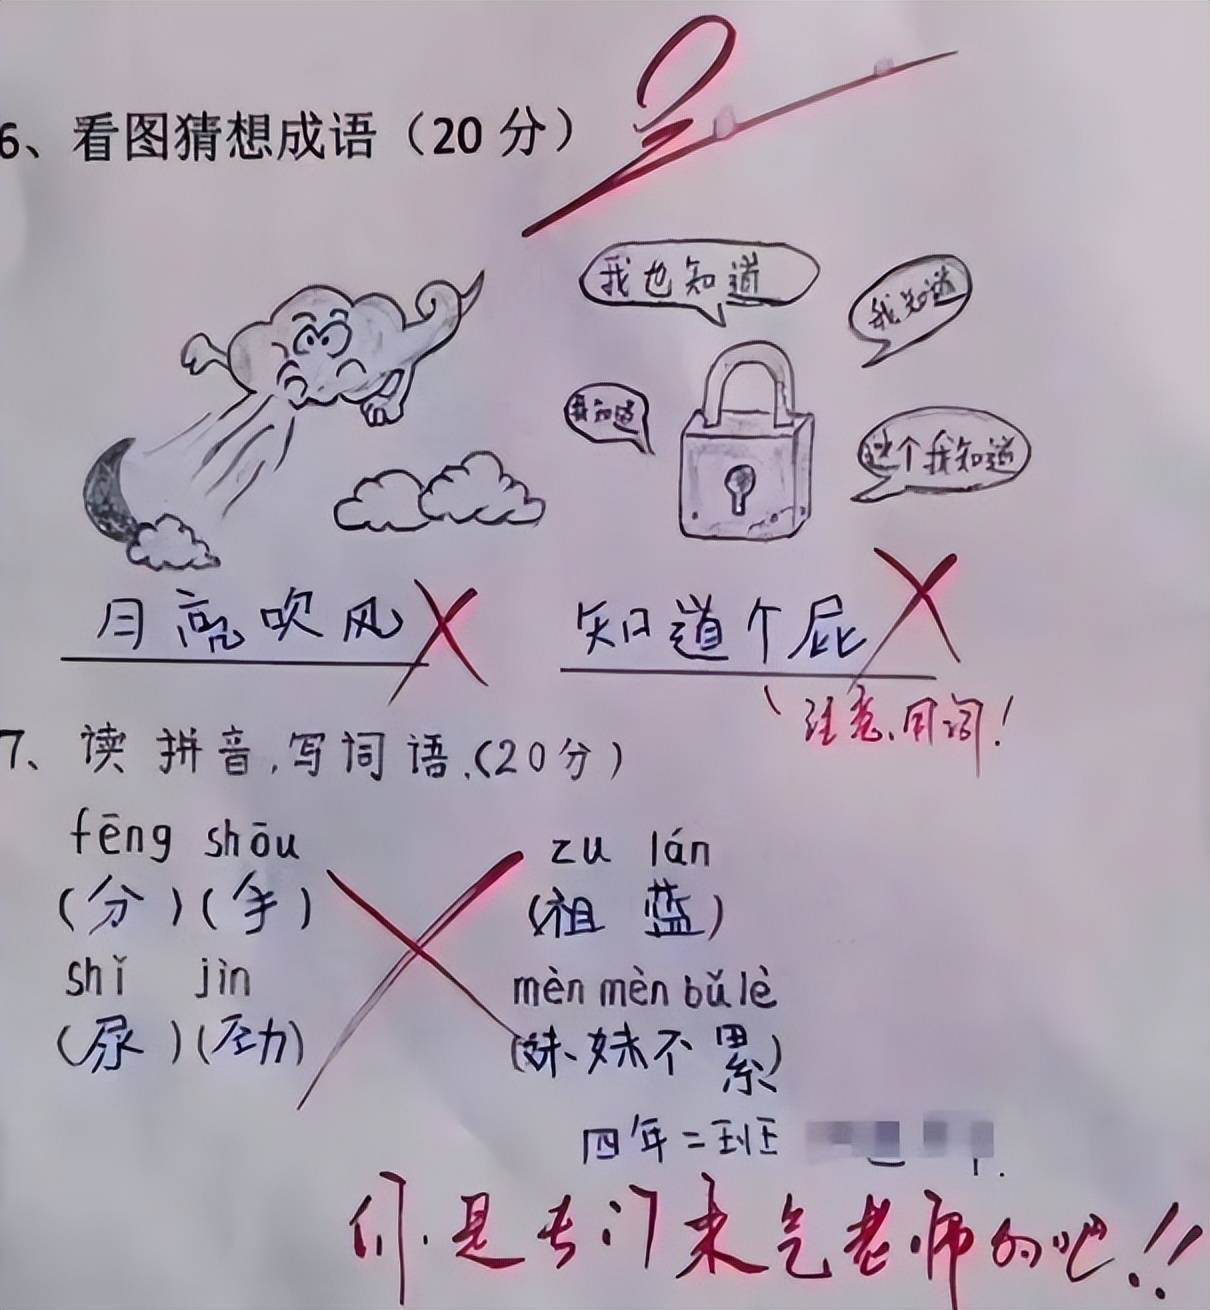 6、看图猜想成语（20 分）
我也知道
我知道
我知道
这个我知道
月亮吹风
知道个屁
注意用词！
7、读拼音,写词语.(20分)
fēng shōu
zu lán
(分)(手)
(祖 蓝)
shǐ jìn
mèn mèn bǔ lè
(尿)(劲)
(妹妹不累)
四年二班
们是专门来气老师的吧!!